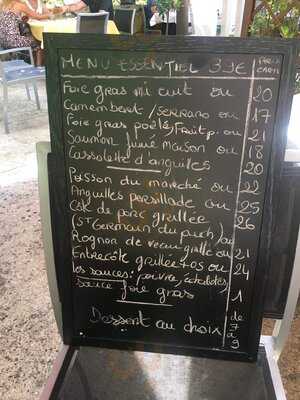 MENU ESSENTIEL 39€ PRIX
CHOIX
Foie gras mi cuit ou 20
Camembert / SERRANO ou 17
Foie gras poêlé / Fruit p. ou 21
Saumon fumé Maison ou 18
Cassolette d'anguilles 20
Poisson du marché ou 22
Anguilles persillade ou 25
Côte de porc grillée 26
(St Germain du puch) ou
Rognon de veau grillé ou 21
Entrecôte grillée + os ou 24
les sauces: poivre, échalotes, 1
sauce foie gras
Dessert au choix de
7
à
9